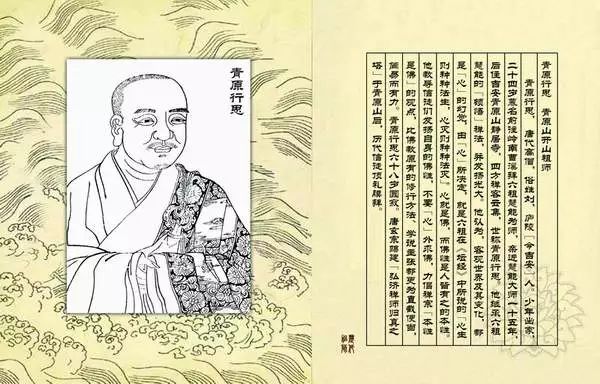 青原行思
青原行思　青原山开山祖师
青原行思，唐代高僧，俗姓刘，庐陵（今吉安）人。少年出家，
二十四岁慕名前往岭南曹溪拜六祖慧能为师，亲近慧能大师一十五年
后住吉安青原山静居寺，四方禅客云集，世称青原行思。他继承六祖
慧能的「顿悟」禅法，并发扬光大。他认为，客观世界及其变化，都
是「心」的幻觉，由「心」所决定，就是六祖在《坛经》中所说的「心生
则种种法生，心灭则种种法灭」。心就是佛，而佛性是人皆有之的本性。
他教导信徒们发扬自身的佛性，不要「心」外求佛，力倡禅宗「本性
是佛」的观点，比佛教原有的修行方法、学说主张都更为直截便当，
简易而有力。青原行思六十八岁圆寂。唐玄宗赐建「弘济禅师归真之
塔」于青原山后，历代信徒顶礼膜拜。